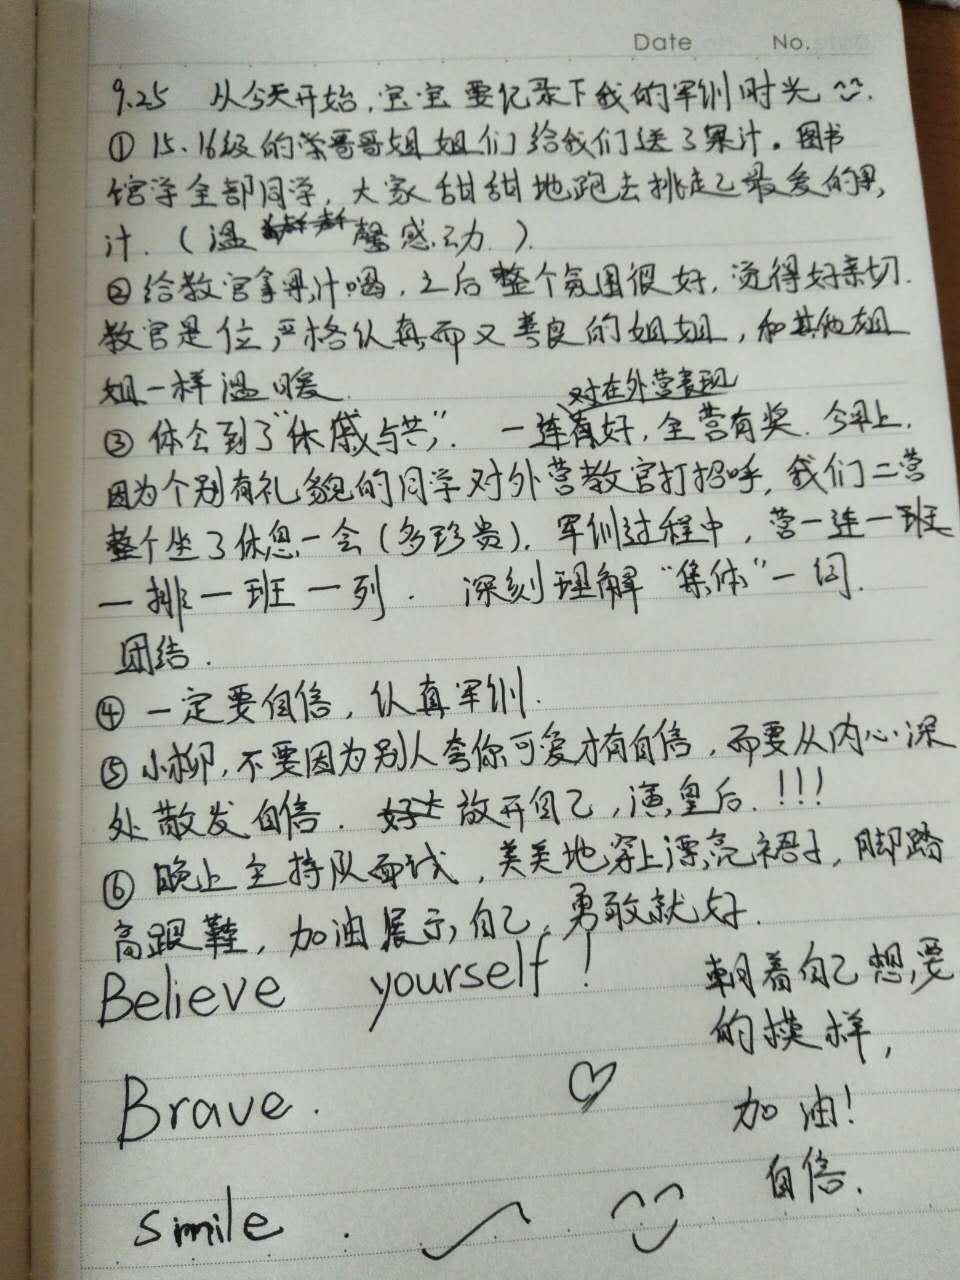 Date No.
9.25 从今天开始,宝宝要记录下我的军训时光
① 15、16级的学哥哥姐姐们给我们送了果汁。图书
馆学全部同学,大家甜甜地跑去挑走己最爱的果
汁.(温馨感动.).
②给教官拿果汁喝,之后整个氛围很好,觉得好亲切.
教官是位严格认真而又善良的姐姐,和其他姐
姐一样温暖.
对在外营表现
③ 体会到了“休戚与共”. 一连有好,全营有奖.今早上,
因为个别有礼貌的同学对外营教官打招呼,我们二营
整个坐了休息一会(多珍贵).军训过程中,营一连一班
一排一班一列. 深刻理解“集体”一词.
团结.
④ 一定要自信,认真军训.
⑤ 小柳,不要因为别人夸你可爱才有自信,而要从内心深
处散发自信. 放开自己,演皇后.!!!
⑥ 晚上主持队面试,美美地穿上漂亮裙子,脚踏
高跟鞋,加油展示自己,勇敢就好.
Believe yourself!
朝着自己想要
的模样,
Brave.
加油!
自信.
smile.